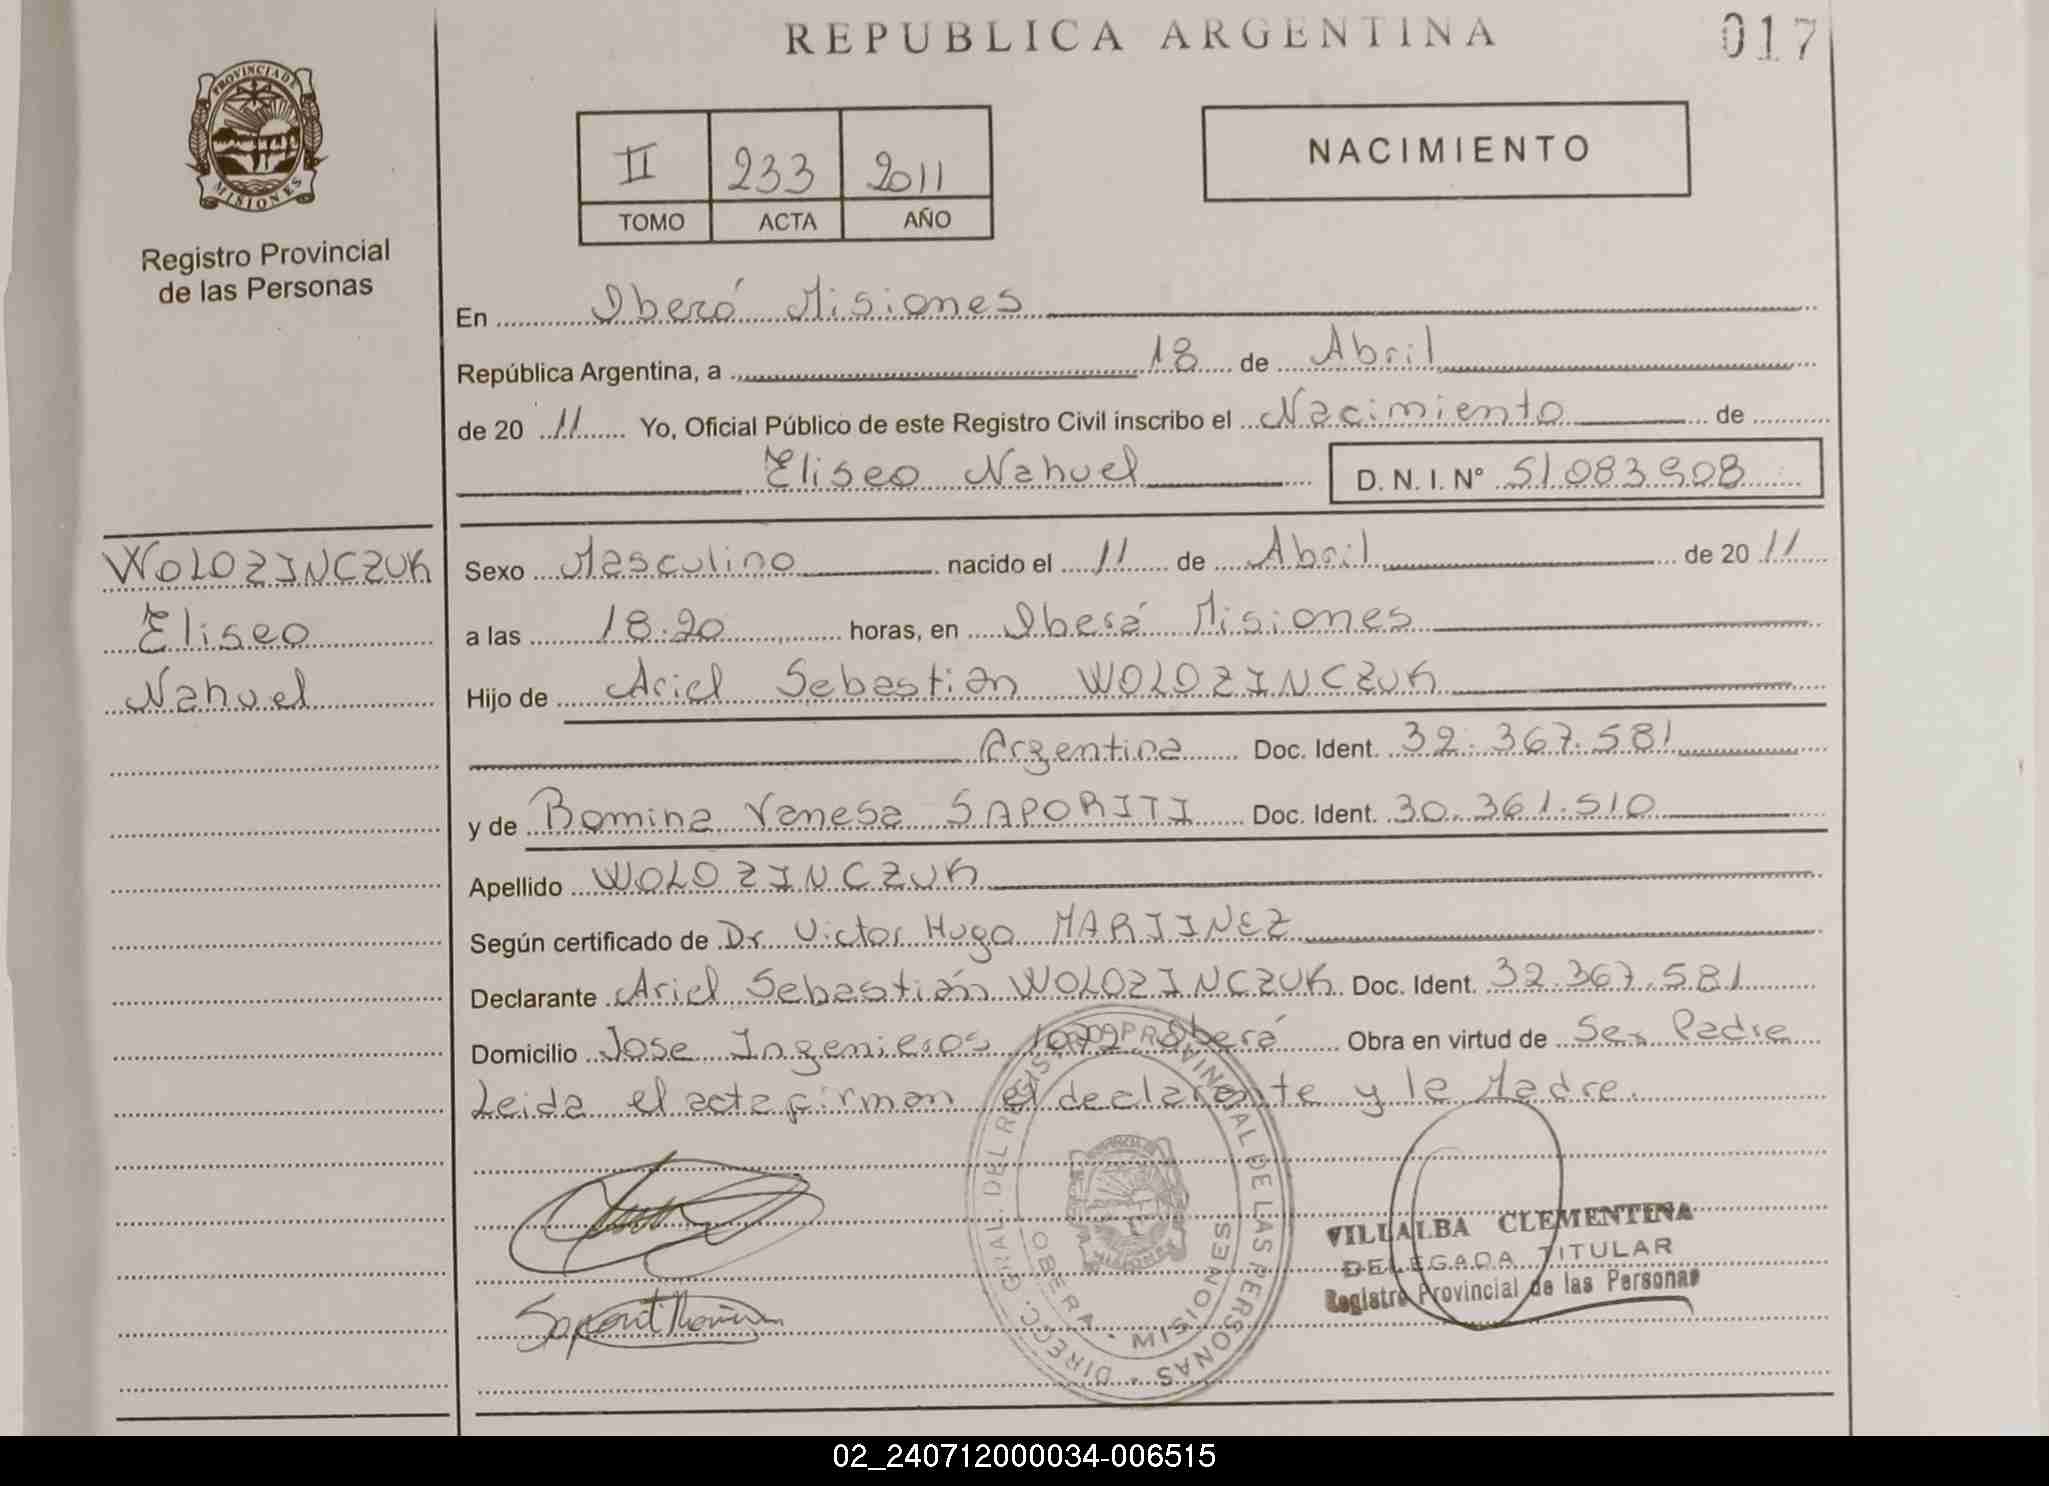 REPUBLICA ARGENTINA
017
PROVINCIA DE MISIONES
Registro Provincial
de las Personas
II 233 2011
TOMO ACTA AÑO
NACIMIENTO
En Oberá Misiones
República Argentina, a 18 de Abril
de 20 11 Yo, Oficial Público de este Registro Civil inscribo el Nacimiento de
Eliseo Nahuel D. N. I. Nº 51083908
WOLOZINCZUK
Eliseo
Nahuel
Sexo Masculino nacido el 11 de Abril de 20 11
a las 18:20 horas, en Oberá Misiones
Hijo de Ariel Sebastián WOLOZINCZUK
Argentina Doc. Ident. 32.367.581
y de Romina Vanesa SAPORITI Doc. Ident. 30.361.510
Apellido WOLOZINCZUK
Según certificado de Dr. Victor Hugo MARTINEZ
Declarante Ariel Sebastián WOLOZINCZUK Doc. Ident. 32.367.581
Domicilio Jose Ingenieros Oberá Obra en virtud de Ser Padre
Leida el acta firman el declarante y la Madre.
DIRECC. GRAL. DEL REGISTRO PROVINCIAL DE LAS PERSONAS
OBERA - MISIONES
VILLALBA CLEMENTINA
DELEGADA TITULAR
Registro Provincial de las Personas
02_240712000034-006515